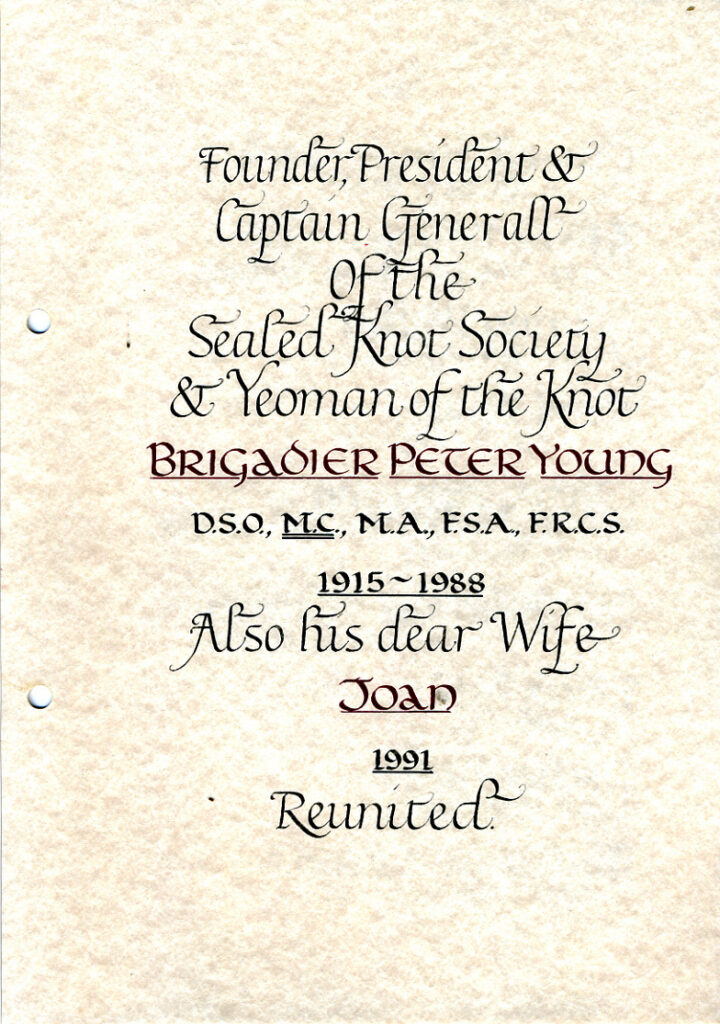 Founder, President &
Captain Generall
Of the
Sealed Knot Society
& Yeoman of the Knot
BRIGADIER PETER YOUNG
D.S.O., M.C., M.A., F.S.A., F.R.C.S.
1915~1988
Also his dear Wife
JOAN
1991
Reunited.